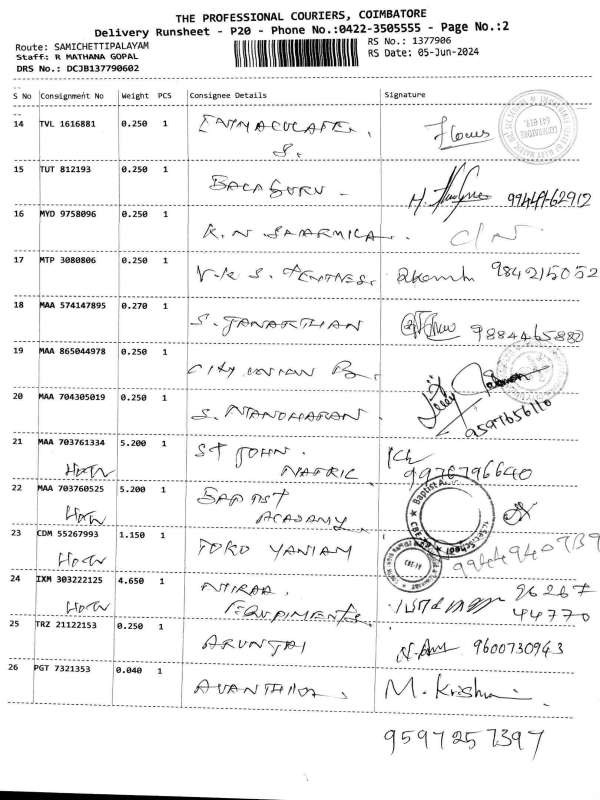 THE PROFESSIONAL COURIERS, COIMBATORE
Delivery Runsheet - P20 - Phone No.:0422-3505555 - Page No.:2
Route: SAMICHETTIPALAYAM RS No.: 1377906
Staff: R MATHANA GOPAL RS Date: 05-Jun-2024
DRS No.: DCJB137790602
S No Consignment No Weight PCS Consignee Details Signature
14 TVL 1616881 0.250 1
S.
15 TUT 812193 0.250 1 BALAGURU - 9944962912
16 MYD 9758096 0.250 1 K. N SHARMILA. C/N
17 MTP 3080806 0.250 1 V.K S. 984215052
18 MAA 574147895 0.270 1 S. JANARTHAN 9884465882
19 MAA 865044978 0.250 1 CITY UNION B.
20 MAA 704305019 0.250 1 S. MANOHARAN. 9597656110
21 MAA 703761334 5.200 1 ST JOHN.
MATRIC. 9976796640
22 MAA 703760525 5.200 1 BAPTIST
ACADEMY
23 CDM 55267993 1.150 1 TOKO 9944940739
24 IXM 303222125 4.650 1 96267
EQUIPMENTS 44770
25 TRZ 21122153 0.250 1 9600730943
26 PGT 7321353 0.040 1 AVANTHIKA. M. Krishna
9597257397